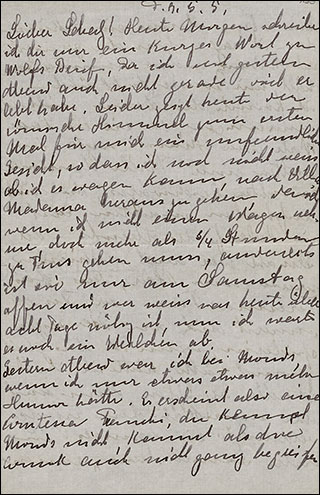 Lieber Schatz! Heute Morgen schreibe
ich dir nur ein kurzes Wort zu
Wolfs Brief, da ich seit gestern
Abend auch nicht gerade viel er
lebt habe. Leider zeigt heute der
römische Himmel zum ersten
Mal für mich ein unfreundlich
Gesicht, so dass ich noch nicht weiss
ob ich es wagen kann, nach Villa
Madama heraus zu gehen, da ich
wenn ich nicht einen Wagen neh
me, doch mehr als 5/4 Stunden
zu Fuss gehen muss, anderseits
ist sie nur am Samstag
offen und wer weiss was heute über
acht Tage nötig ist, nun ich warte
es noch ein Weilchen ab.
Gestern Abend war ich bei
wenn ich nur etwas etwas mehr
Humor hätte. Es erscheint also eine
du kennst
nicht kennst als die
auch nicht ganz begreifen